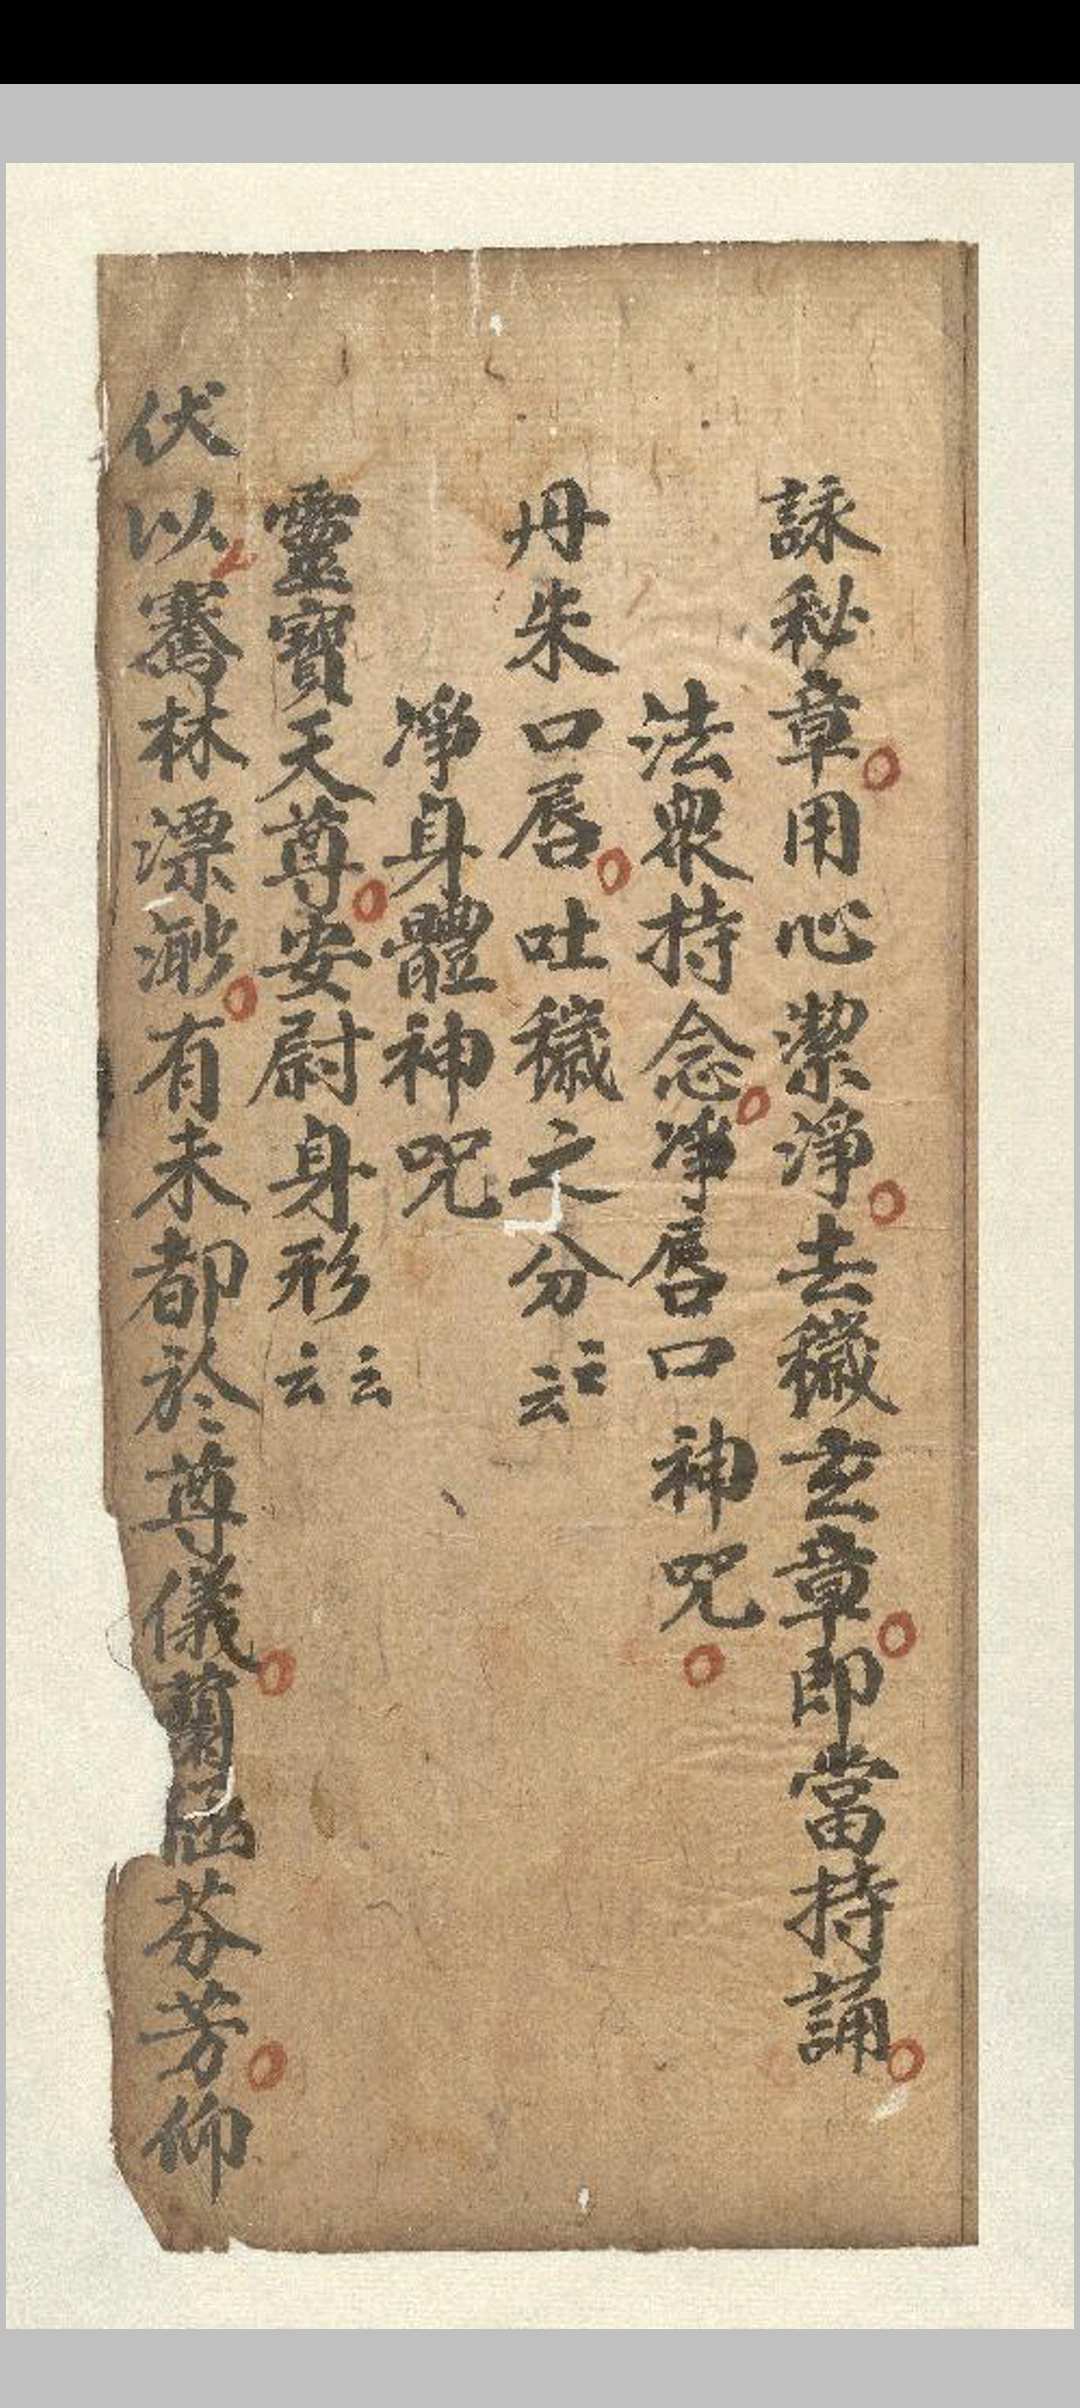 詠秘章用心潔淨去穢玄章即當持誦
法衆持念凈唇口神咒
丹朱口唇吐穢之分云云
凈身體神咒
靈寶天尊安尉身形云云
伏以騫林漂渺有未都於尊儀蘭涵芬芳仰